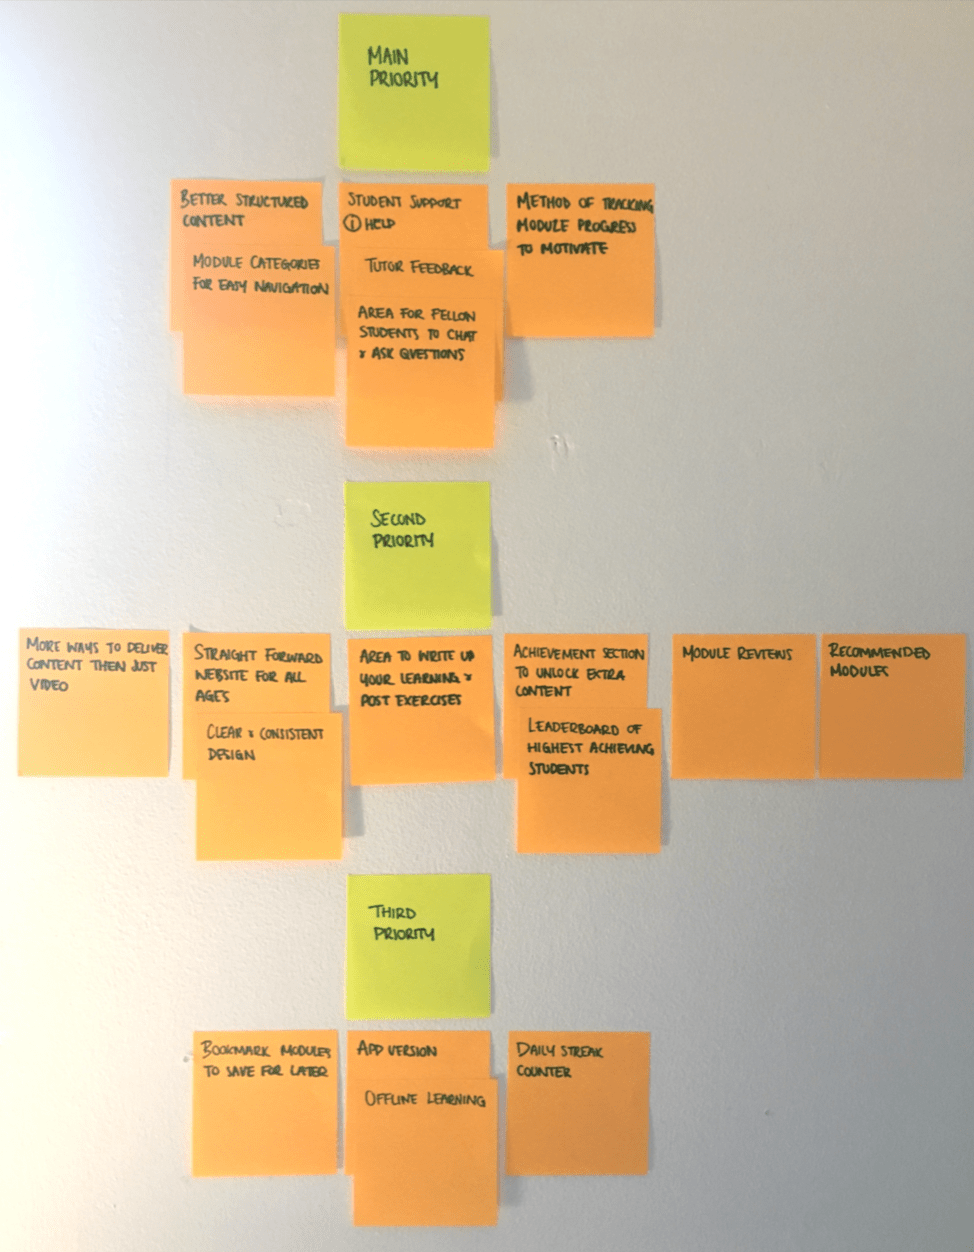 MAIN
PRIORITY
BETTER STRUCTURED
CONTENT
MODULE CATEGORIES
FOR EASY NAVIGATION
STUDENT SUPPORT
ⓘ HELP
TUTOR FEEDBACK
AREA FOR FELLOW
STUDENTS TO CHAT
& ASK QUESTIONS
METHOD OF TRACKING
MODULE PROGRESS
TO MOTIVATE
SECOND
PRIORITY
MORE WAYS TO DELIVER
CONTENT THEN JUST
VIDEO
STRAIGHT FORWARD
WEBSITE FOR ALL
AGES
CLEAR & CONSISTENT
DESIGN
AREA TO WRITE UP
YOUR LEARNING &
POST EXERCISES
ACHIEVEMENT SECTION
TO UNLOCK EXTRA
CONTENT
LEADERBOARD OF
HIGHEST ACHIEVING
STUDENTS
MODULE REVIEWS
RECOMMENDED
MODULES
THIRD
PRIORITY
BOOKMARK MODULES
TO SAVE FOR LATER
APP VERSION
OFFLINE LEARNING
DAILY STREAK
COUNTER